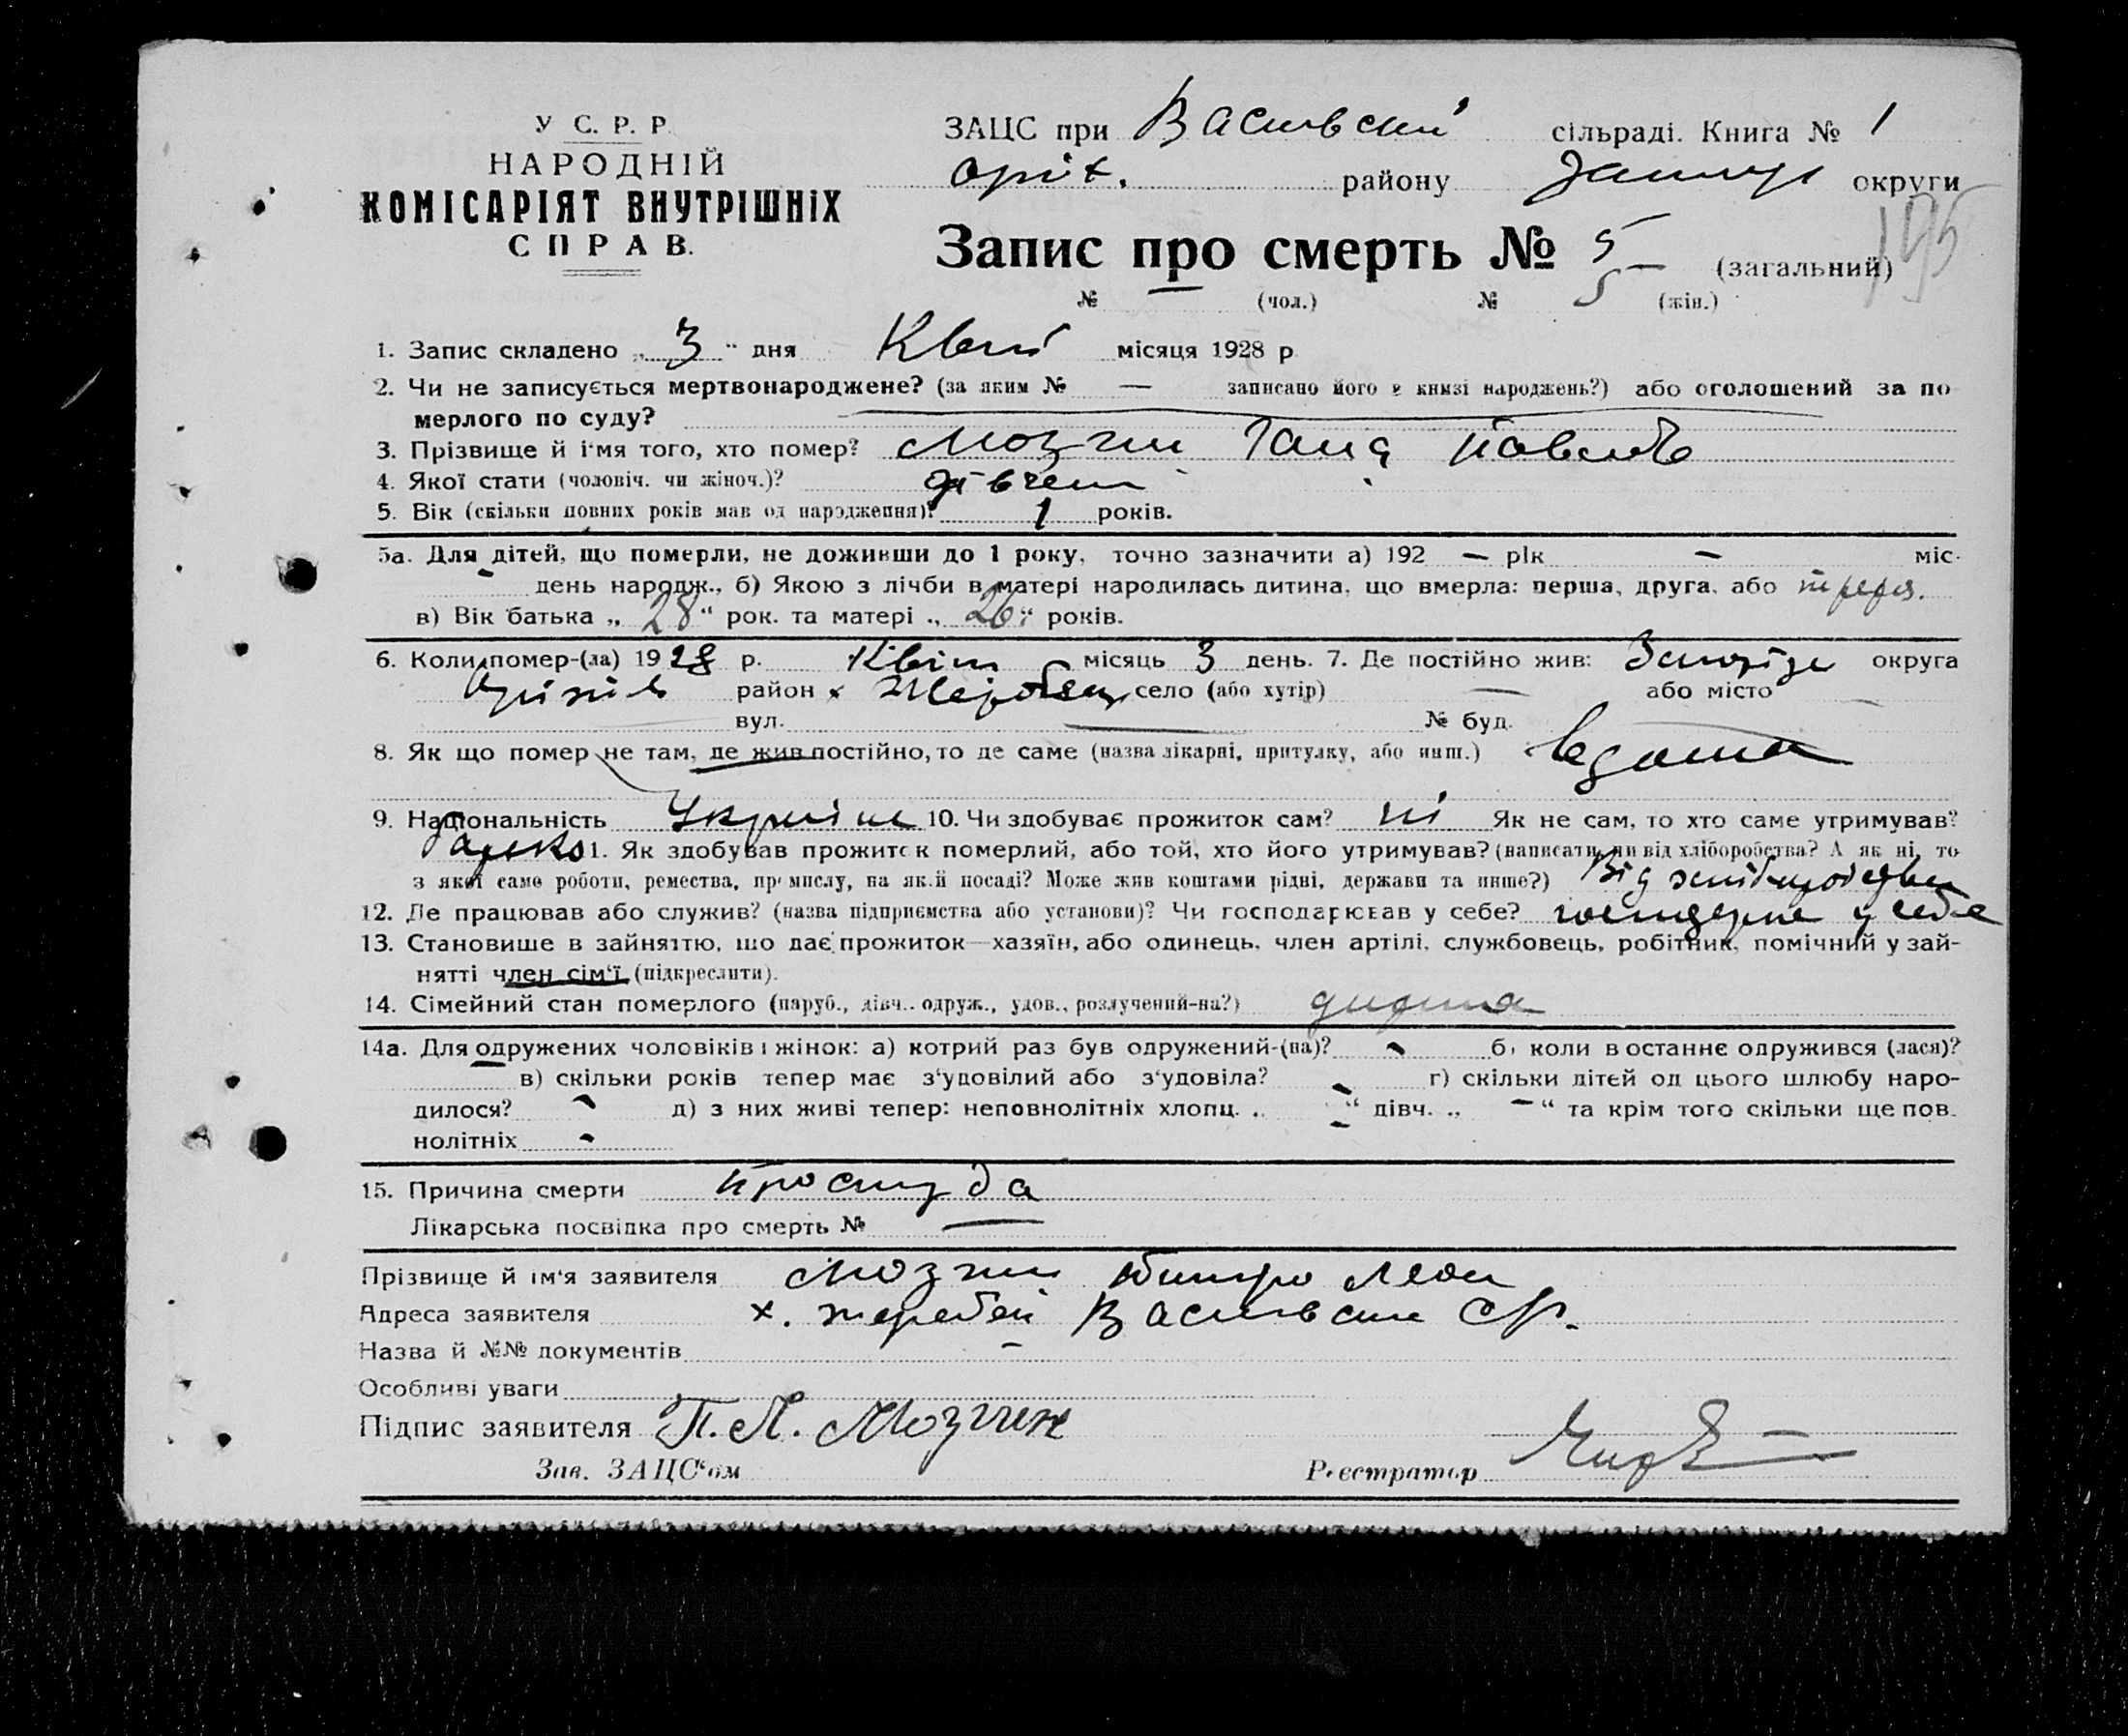 У С. Р. Р.
НАРОДНІЙ
КОМІСАРІЯТ ВНУТРІШНІХ
СПРАВ.
ЗАЦС при Васильвский сільраді. Книга № 1
оріх. району округи
195
Запис про смерть № 5 (загальний)
№ — (чол.) № 5 (жін.)
1. Запис складено „ 3 “ дня місяця 1928 р
2. Чи не записується мертвонароджене? (за яким № — записано його в книзі народжень?) або оголошений за по
мерлого по суду?
3. Прізвище й ім'я того, хто помер? Мозгин Ганя
4. Якої стати (чоловіч. чи жіноч.)? дівчин
5. Вік (скільки повних років мав од народження)? 1 років.
5а. Для дітей, що померли, не доживши до 1 року, точно зазначити а) 192 — рік — міс.
- день народж., б) Якою з лічби в матері народилась дитина, що вмерла: перша, друга, або
в) Вік батька „ 28 “ рок. та матері „ 26 “ років.
6. Коли помер-(ла) 1928 р. Квіт місяць 3 день. 7. Де постійно жив: округа
район х Жеребец село (або хутір) — або місто —
вул. — № буд.
8. Як що помер не там, де жив постійно, то де саме (назва лікарні, притулку, або инш.) вдома
9. Національність Україн 10. Чи здобуває прожиток сам? ні Як не сам, то хто саме утримував?
11. Як здобував прожиток померлий, або той, хто його утримував? (написати, чи від хліборобства? А як ні, то
з якої саме роботи, ремества, промислу, на якій посаді? Може жив коштами рідні, держави та инше?) Від
12. Де працював або служив? (назва підприємства або установи)? Чи господарював у себе? у себе
13. Становище в зайняттю, що дає прожиток—хазяїн, або одинець, член артілі, службовець, робітник, помічний у зай-
нятті член сім'ї (підкреслити).
14. Сімейний стан померлого (паруб., дівч.. одруж., удов., розлучений-на?) дитина
14а. Для одружених чоловіків і жінок: а) котрий раз був одружений-(на)? - б) коли в останнє одружився (лася)?
в) скільки років тепер має з'удовілий або з'удовіла? - г) скільки дітей од цього шлюбу наро-
дилося? - д) з них живі тепер: неповнолітніх хлопц. „ - “ дівч. „ — “ та крім того скільки ще пов.
нолітніх -
15. Причина смерти простуда
Лікарська посвідка про смерть № —
Прізвище й ім'я заявителя Мозгин
Адреса заявителя х. жеребец Васильвск СР.
Назва й №№ документів —
Особливі уваги
Підпис заявителя П. Л. Мозгин
Зав. ЗАЦС'ом Реєстратор